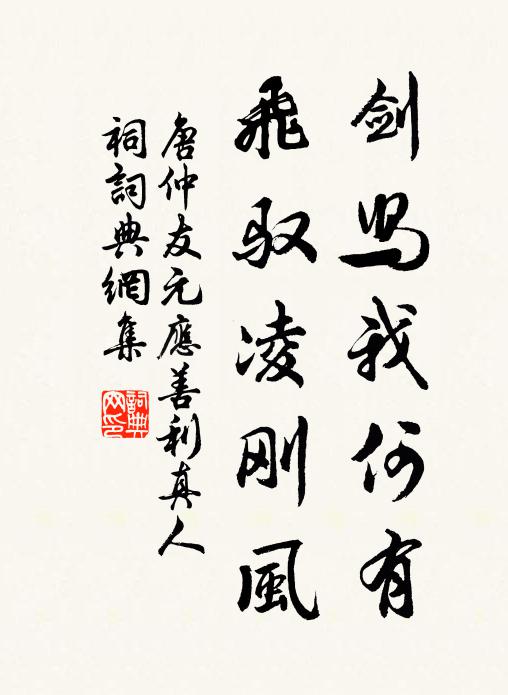 剑舄我何有
飛驭凌刚風
唐仲友元應善利真人
祠詞典網集
詞典
网印